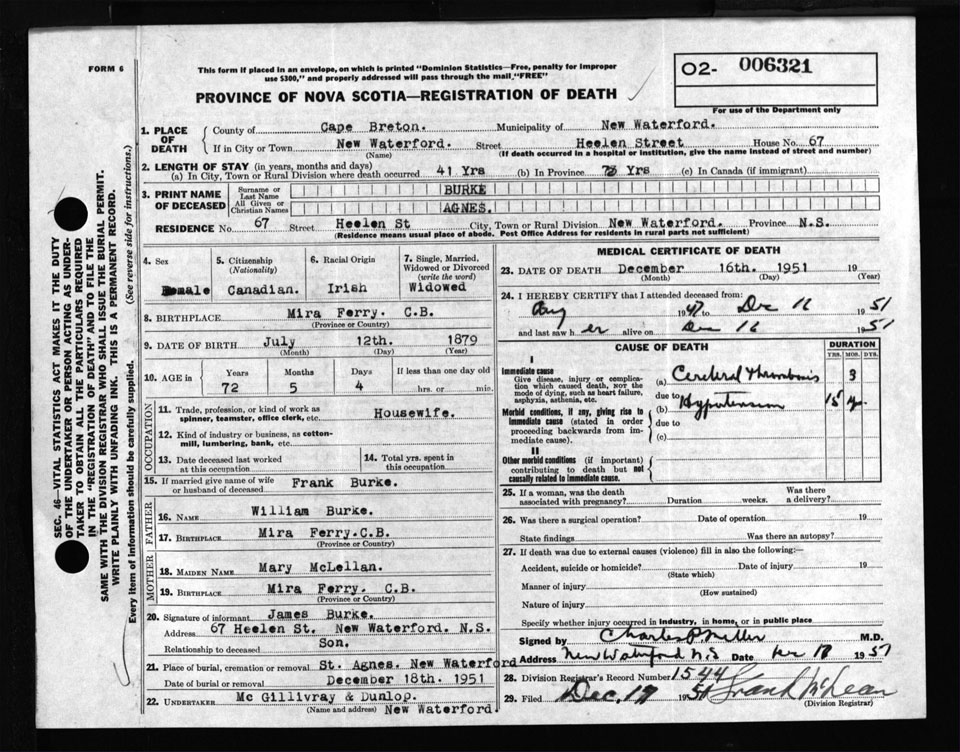 FORM 6
This form if placed in an envelope, on which is printed "Dominion Statistics—Free, penalty for improper
use $300," and properly addressed will pass through the mail "FREE"
02- 006321
For use of the Department only
PROVINCE OF NOVA SCOTIA—REGISTRATION OF DEATH
1. PLACE OF DEATH
County of Cape Breton. Municipality of New Waterford.
If in City or Town New Waterford. Street Heelen Street House No. 67
(Name) (If death occurred in a hospital or institution, give the name instead of street and number)
2. LENGTH OF STAY (in years, months and days)
(a) In City, Town or Rural Division where death occurred 41 Yrs (b) In Province Yrs (c) In Canada (if immigrant)
3. PRINT NAME OF DECEASED
Surname or Last Name BURKE
All Given or Christian Names AGNES.
RESIDENCE No. 67 Street Heelen St City, Town or Rural Division New Waterford. Province N.S.
(Residence means usual place of abode. Post Office Address for residents in rural parts not sufficient)
4. Sex
Female
5. Citizenship (Nationality)
Canadian.
6. Racial Origin
Irish
7. Single, Married, Widowed or Divorced (write the word)
Widowed
8. BIRTHPLACE Mira Ferry. C.B.
(Province or Country)
9. DATE OF BIRTH July 12th. 1879
(Month) (Day) (Year)
10. AGE in
Years Months Days If less than one day old
72 5 4 hrs. or min.
OCCUPATION
11. Trade, profession, or kind of work as
spinner, teamster, office clerk, etc. Housewife.
12. Kind of industry or business, as cotton-
mill, lumbering, bank, etc.
13. Date deceased last worked
at this occupation
14. Total yrs. spent in
this occupation
15. If married give name of wife
or husband of deceased Frank Burke.
FATHER
16. NAME William Burke.
17. BIRTHPLACE Mira Ferry.C.B.
(Province or Country)
MOTHER
18. MAIDEN NAME Mary McLellan.
19. BIRTHPLACE Mira Ferry. C.B.
(Province or Country)
20. Signature of informant James Burke.
Address 67 Heelen St. New Waterford. N.S.
Relationship to deceased Son.
21. Place of burial, cremation or removal St. Agnes. New Waterford
Date of burial or removal December 18th. 1951
22. UNDERTAKER Mc Gillivray & Dunlop.
(Name and address) New Waterford.
MEDICAL CERTIFICATE OF DEATH
23. DATE OF DEATH December 16th. 1951 19
(Month) (Day) (Year)
24. I HEREBY CERTIFY that I attended deceased from:
Aug 1947 to Dec 16 1951
and last saw h er alive on Dec 16 1951
CAUSE OF DEATH
DURATION
YRS. MOS. DYS.
I
Immediate cause
Give disease, injury or complica-
tion which caused death, NOT the
mode of dying, such as heart failure,
asphyxia, asthenia, etc.
(a) Cerebral Thrombosis 3
due to
Morbid conditions, if any, giving rise to
immediate cause (stated in order
proceeding backwards from im-
mediate cause).
(b) Hypertension 15 yrs
due to
(c)
II
Other morbid conditions (if important)
contributing to death but not
causally related to immediate cause.
25. If a woman, was the death
associated with pregnancy? Duration weeks. Was there a delivery?
26. Was there a surgical operation? Date of operation 19
State findings Was there an autopsy?
27. If death was due to external causes (violence) fill in also the following:—
Accident, suicide or homicide? Date of injury 19
(State which)
Manner of injury
(How sustained)
Nature of injury
Specify whether injury occurred in industry, in home, or in public place
Signed by Charles P Miller M.D.
Address New Waterford N.S Date Dec 18 1951
28. Division Registrar's Record Number 1544
29. Filed Dec. 19 1951 Frank McLean
(Division Registrar)
SEC. 46—VITAL STATISTICS ACT MAKES IT THE DUTY
OF THE UNDERTAKER OR PERSON ACTING AS UNDER-
TAKER TO OBTAIN ALL THE PARTICULARS REQUIRED
IN THE "REGISTRATION OF DEATH" AND TO FILE THE
SAME WITH THE DIVISION REGISTRAR WHO SHALL ISSUE THE BURIAL PERMIT.
WRITE PLAINLY WITH UNFADING INK. THIS IS A PERMANENT RECORD.
Every item of information should be carefully supplied. (See reverse side for instructions.)